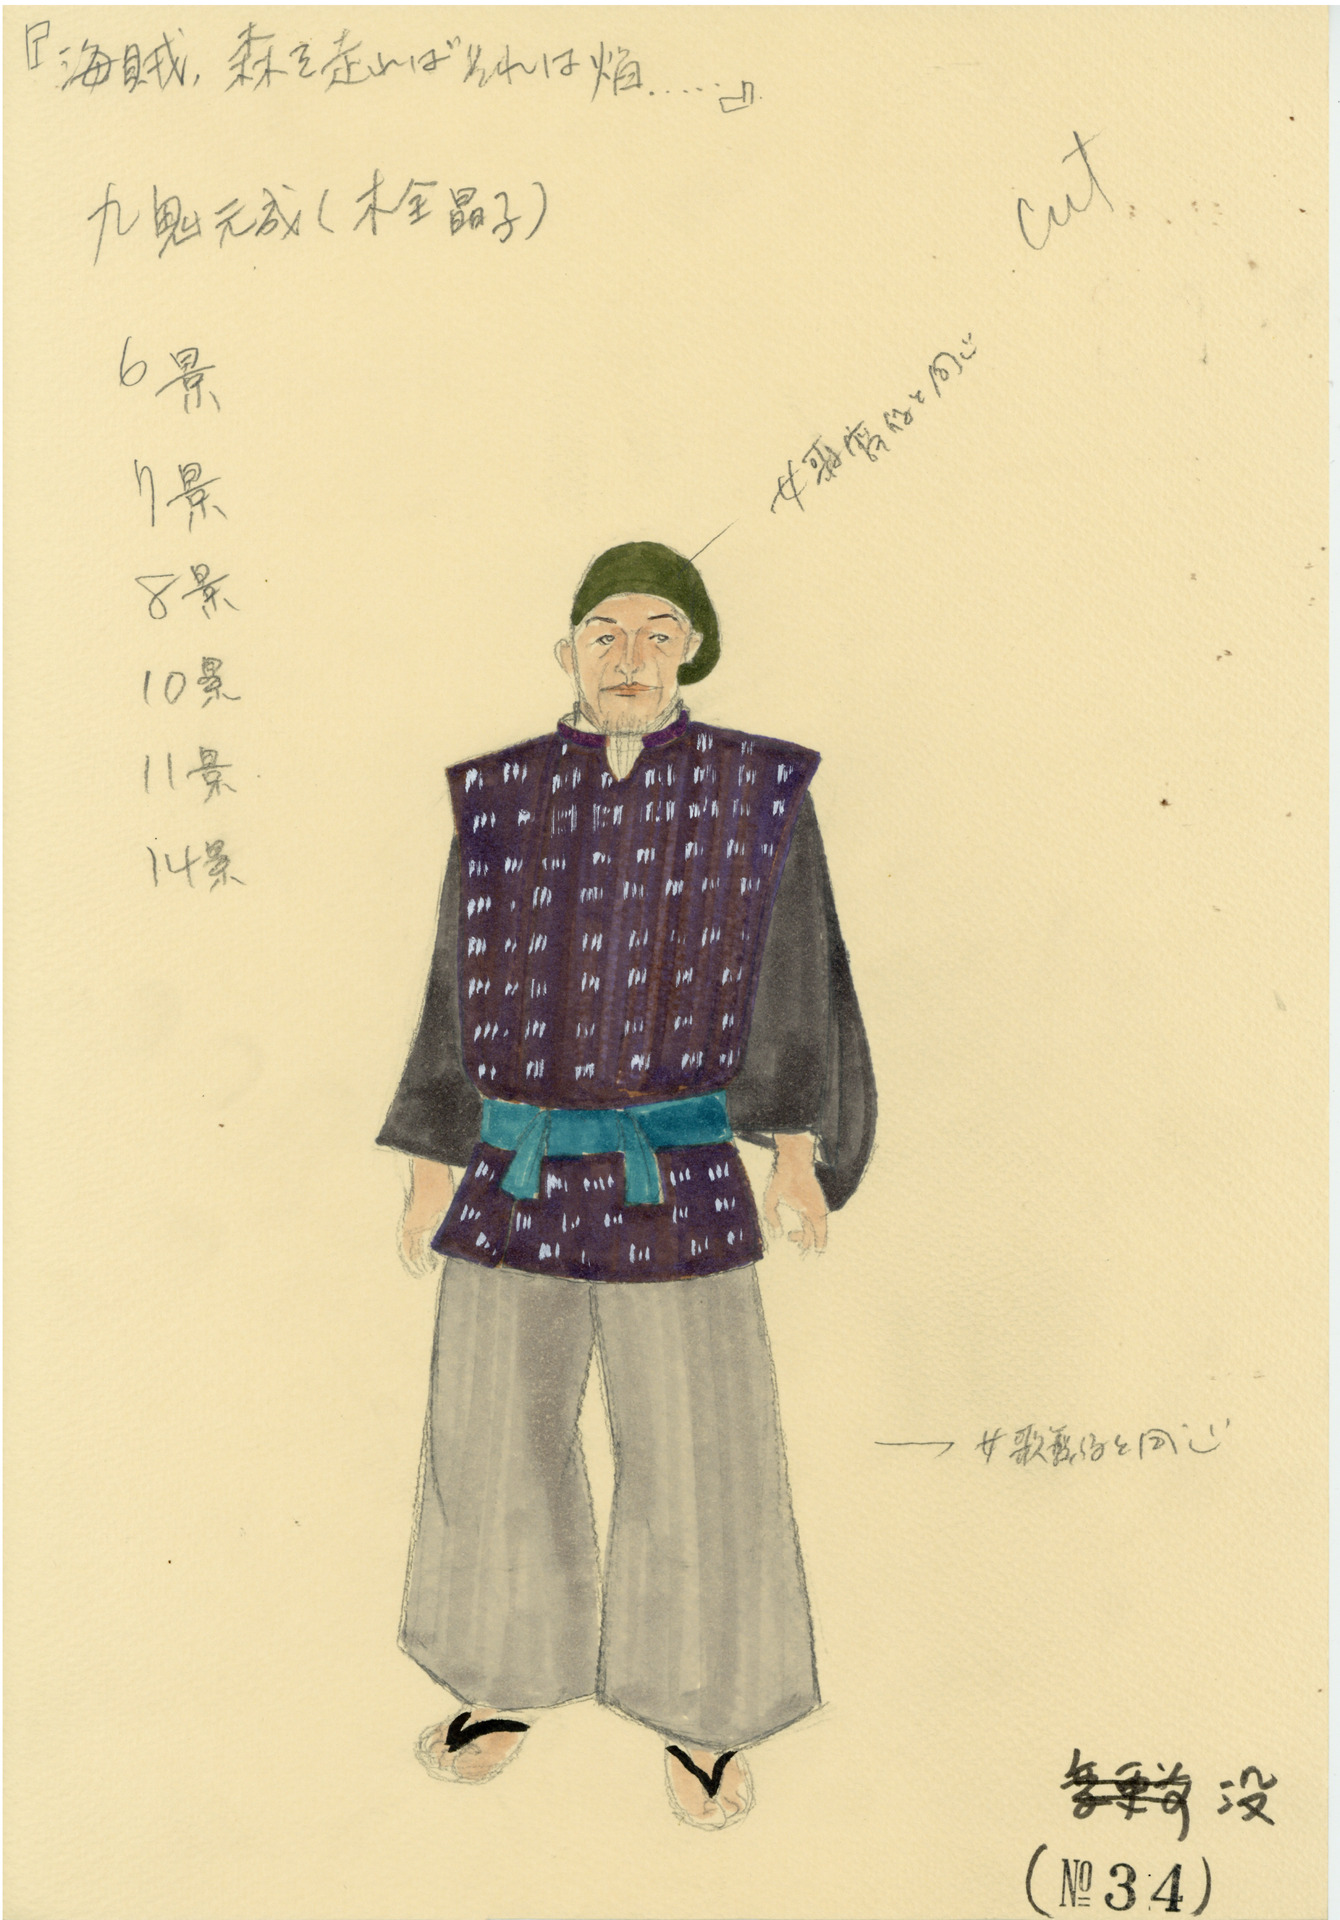 『海賊、森を走ればそれは焔……』
cut
九鬼元成(木全晶子)
6景
7景
8景
10景
11景
14景
女歌舞伎と同じ
女歌舞伎と同じ
没
(№34)